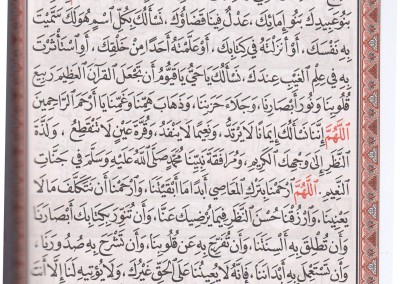 بَنُو عَبِيدِكَ بَنُو إِمَائِكَ، عَدْلٌ فِينَا قَضَاؤُكَ، نَسْأَلُكَ بِكُلِّ اسْمٍ هُوَ لَكَ سَمَّيْتَ
بِهِ نَفْسَكَ، أَوْ أَنْزَلْتَهُ فِي كِتَابِكَ، أَوْ عَلَّمْتَهُ أَحَدًا مِنْ خَلْقِكَ، أَوِ اسْتَأْثَرْتَ
بِهِ فِي عِلْمِ الْغَيْبِ عِنْدَكَ، نَسْأَلُكَ يَا حَيُّ يَا قَيُّومُ أَنْ تَجْعَلَ الْقُرْآنَ الْعَظِيمَ رَبِيعَ
قُلُوبِنَا وَنُورَ أَبْصَارِنَا، وَجَلَاءَ حُزْنِنَا، وَذَهَابَ هَمِّنَا وَغَمِّنَا يَا أَرْحَمَ الرَّاحِمِينَ
اللَّهُمَّ إِنَّا نَسْأَلُكَ إِيمَانًا لَا يَرْتَدُّ، وَنَعِيمًا لَا يَنْفَدُ، وَقُرَّةَ عَيْنٍ لَا تَنْقَطِعُ، وَلَذَّةَ
النَّظَرِ إِلَى وَجْهِكَ الْكَرِيمِ، وَمُرَافَقَةَ نَبِيِّنَا مُحَمَّدٍ صَلَّى اللَّهُ عَلَيْهِ وَسَلَّمَ فِي جَنَّاتِ
النَّعِيمِ. اللَّهُمَّ ارْحَمْنَا بِتَرْكِ الْمَعَاصِي أَبَدًا مَا أَبْقَيْتَنَا، وَارْحَمْنَا أَنْ نَتَكَلَّفَ مَا لَا
يَعْنِينَا، وَارْزُقْنَا حُسْنَ النَّظَرِ فِيمَا يُرْضِيكَ عَنَّا، وَأَنْ تُنَوِّرَ بِكِتَابِكَ أَبْصَارَنَا
وَأَنْ تُطْلِقَ بِهِ أَلْسِنَتَنَا، وَأَنْ تُفَرِّجَ بِهِ عَنْ قُلُوبِنَا، وَأَنْ تَشْرَحَ بِهِ صُدُورَنَا،
وَأَنْ تَسْتَعْمِلَ بِهِ أَبْدَانَنَا، فَإِنَّهُ لَا يُعِينُنَا عَلَى الْحَقِّ غَيْرُكَ، وَلَا يُؤْتِيهِ لَنَا إِلَّا أَنْتَ